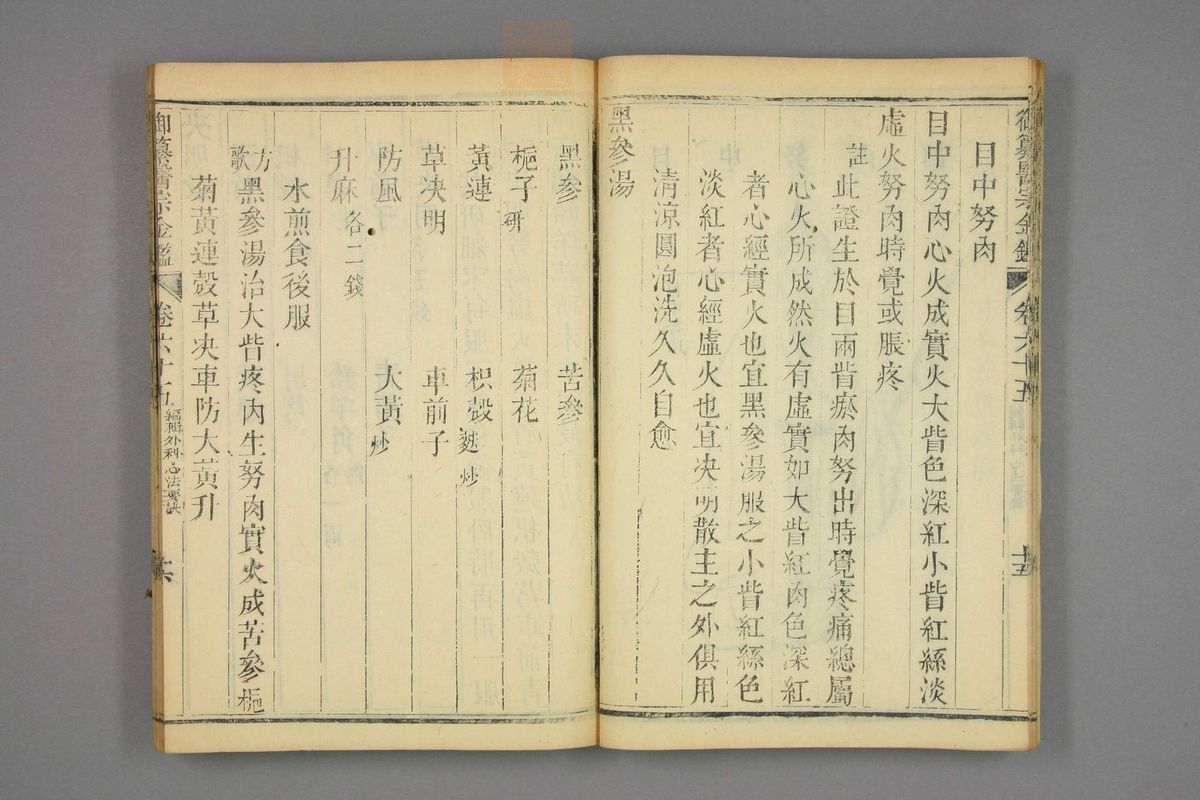 御纂醫宗金鑑 卷六十五 十五
目中努肉
目中努肉心火成實火大眥色深紅小眥紅絲淡
虛火努肉時覺或脹疼
註此證生於目兩眥瘀肉努出時覺疼痛總屬
心火所成然火有虛實如大眥紅肉色深紅
者心經實火也宜黑參湯服之小眥紅絲色
淡紅者心經虛火也宜决明散主之外俱用
清涼圓泡洗久久自愈
黑參湯
黑參 苦參
梔子研 菊花
黃連 枳殼麩炒
草决明 車前子
防風 大黃炒
升麻各二錢
水煎食後服
方歌 黑參湯治大眥疼內生努肉實火成苦參梔
菊黃連殼草决車防大黃升
御纂醫宗金鑑 卷六十五 編輯外科心法要訣 十六